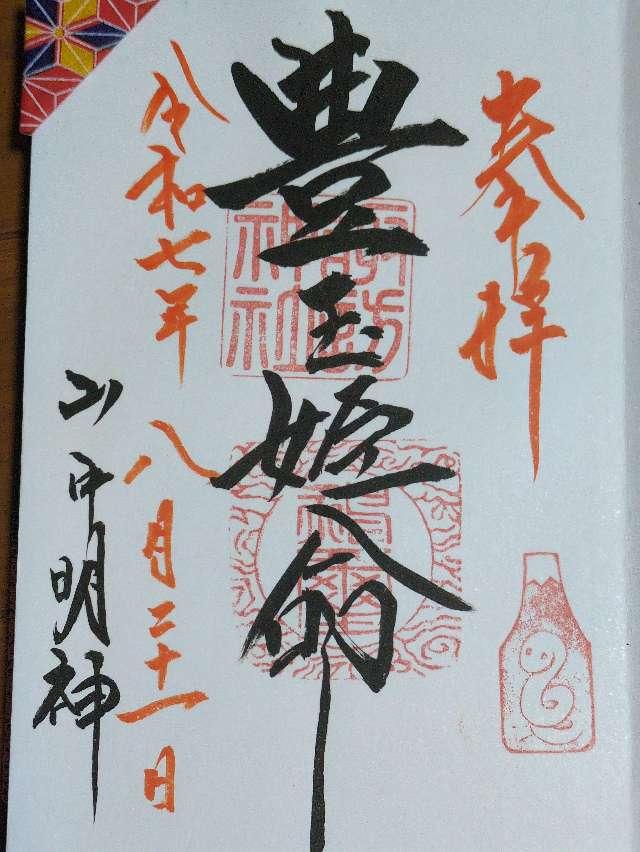 奉拝
豊玉姫命
諏訪神社
令和七年
八月二十一日
山中明神